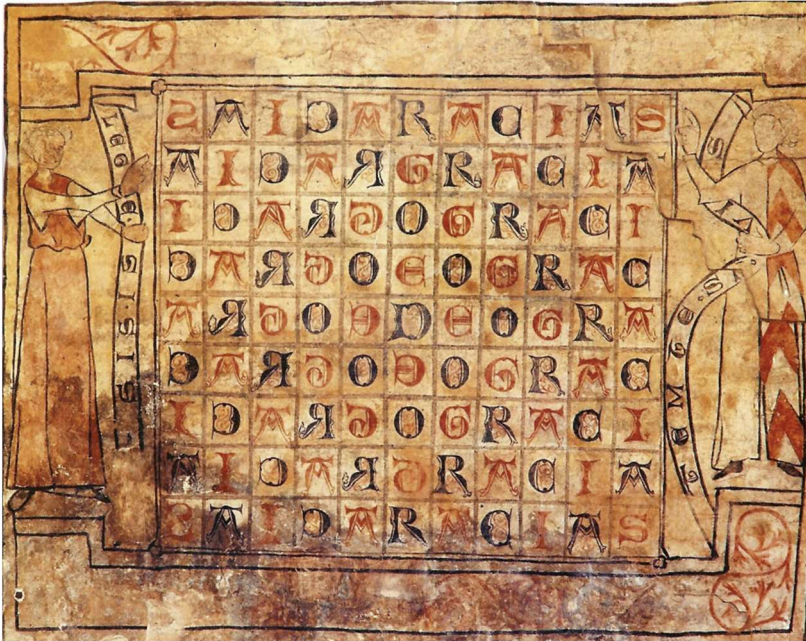 S A I C A R A C I A S
A I C A R G R A C I A
I C A R G O G R A C I
C A R G O E O G R A C
A R G O E D E O G R A
C A R G O E O G R A C
I C A R G O G R A C I
A I C A R G R A C I A
S A I C A R A C I A S